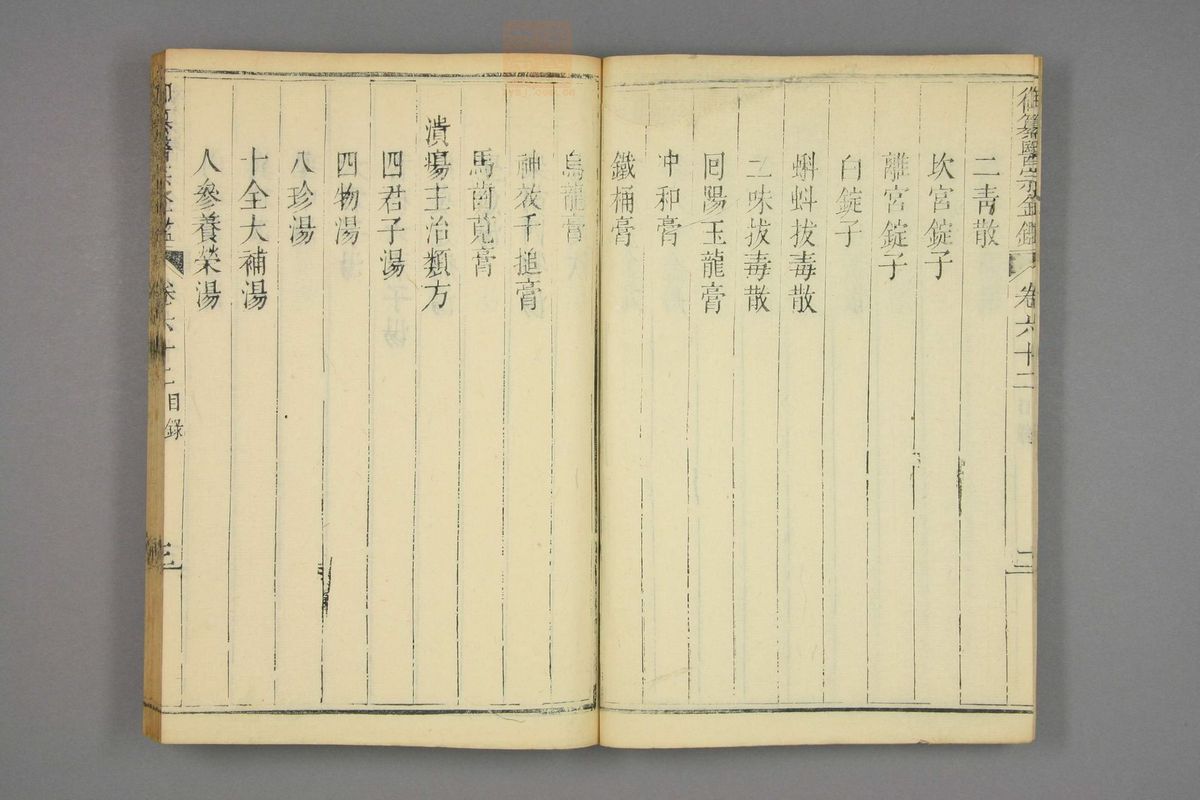 御纂醫宗金鑑
卷六十二
二
二青散
坎宮錠子
離宮錠子
白錠子
蝌蚪拔毒散
二味拔毒散
囘陽玉龍膏
冲和膏
鐵桶膏
烏龍膏
神效千搥膏
馬齒莧膏
潰瘍主治類方
四君子湯
四物湯
八珍湯
十全大補湯
人參養榮湯
御纂醫宗金鑑
卷六十二
目錄
三